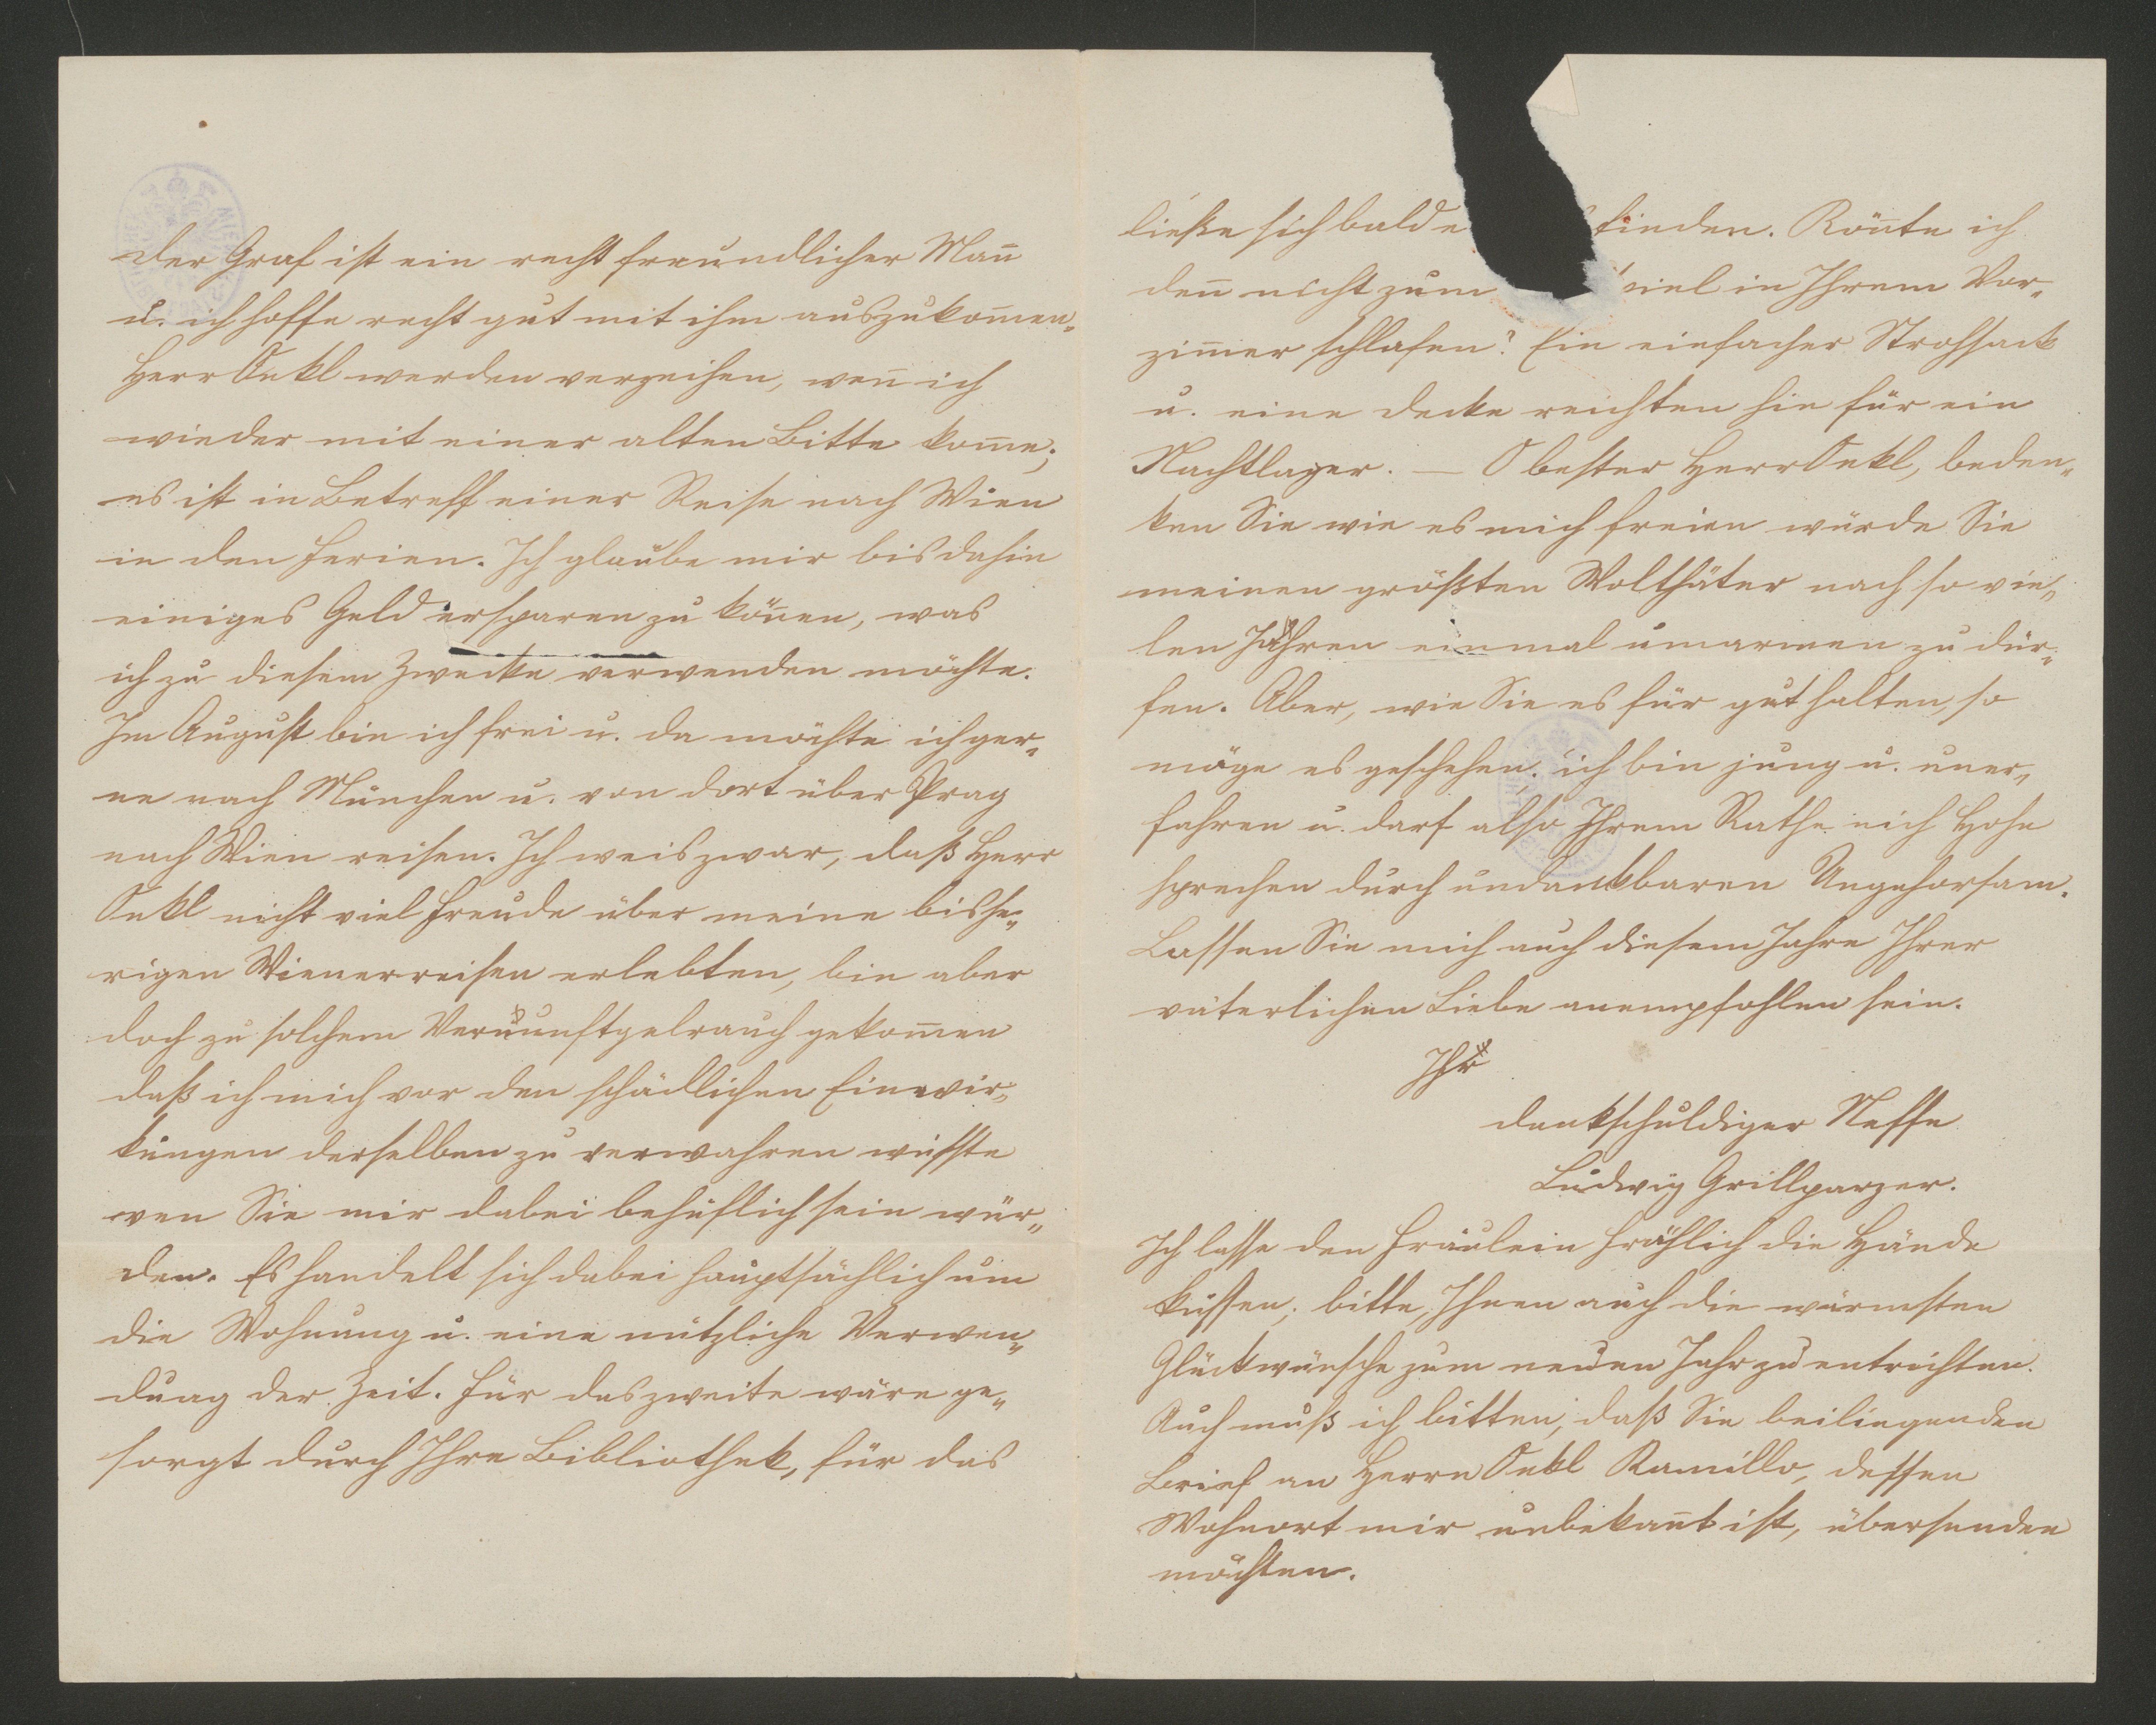 der Graf ist ein recht freundlicher Man̄
u. ich hoffe recht gut mit ihm auszukom̄en.
Herr Onkl werden verzeihen, wen̄ ich
wieder mit einer alten Bitte kom̄e;
es ist in Betreff einer Reise nach Wien
in den Ferien. Ich glaube mir bis dahin
einiges Geld ersparen zu kön̄en, was
ich zu diesem Zwecke verwenden möchte.
Im August bin ich frei u. da möchte ich ger„
ne nach München u. von dort über Prag
nach Wien reisen. Ich weis zwar, daß Herr
Onkl nicht viel Freude über meine bishe„
rigen Wienerreisen erlebten, bin aber
doch zu solchem Vernunftgebrauch gekom̄en
daß ich mich vor den schädlichen Einwir„
kungen derselben zu verwahren wüsste
wen Sie mir dabei behüflich sein wür„
den. Es handelt sich dabei hauptsächlich um
die Wohnung u. eine nützliche Verwen„
dung der Zeit. Für das zweite wäre ge„
sorgt durch Ihre Bibliothek, für das
ließe sich bald e finden. Kön̄te ich
den̄ nicht zum iel in Ihrem Vor„
zim̄er schlafen? Ein einfacher Strohsack
u. eine Decke reichten hin für ein
Nachtlager. — O bester Herr Onkl, beden„
ken Sie wie es mich freien würde Sie
meinen größten Wolthäter nach so vie„
len Jahren einmal umarmen zu dür„
fen. Aber, wie Sie es für gut halten, so
möge es geschehen; ich bin jung u. uner„
fahren u. darf also Ihrem Rathe nich Hohn
sprechen durch undankbaren Ungehorsam.
Lassen Sie mich auch diesem Jahre Ihrer
väterlichen Liebe anempfohlen sein.
Ihr
dankschuldiger Neffe
Ludwig Grillparzer.
Ich lasse den Fräulein Fröhlich die Hände
küssen; bitte, Ihnen auch die wärmsten
Glückwünsche zum neuen Jahr zu entrichten.
Auch muß ich bitten, daß Sie beiliegenden
Brief an Herrn Onkl Kamillo, dessen
Wohnort mir unbekan̄t ist, übersenden
möchten.